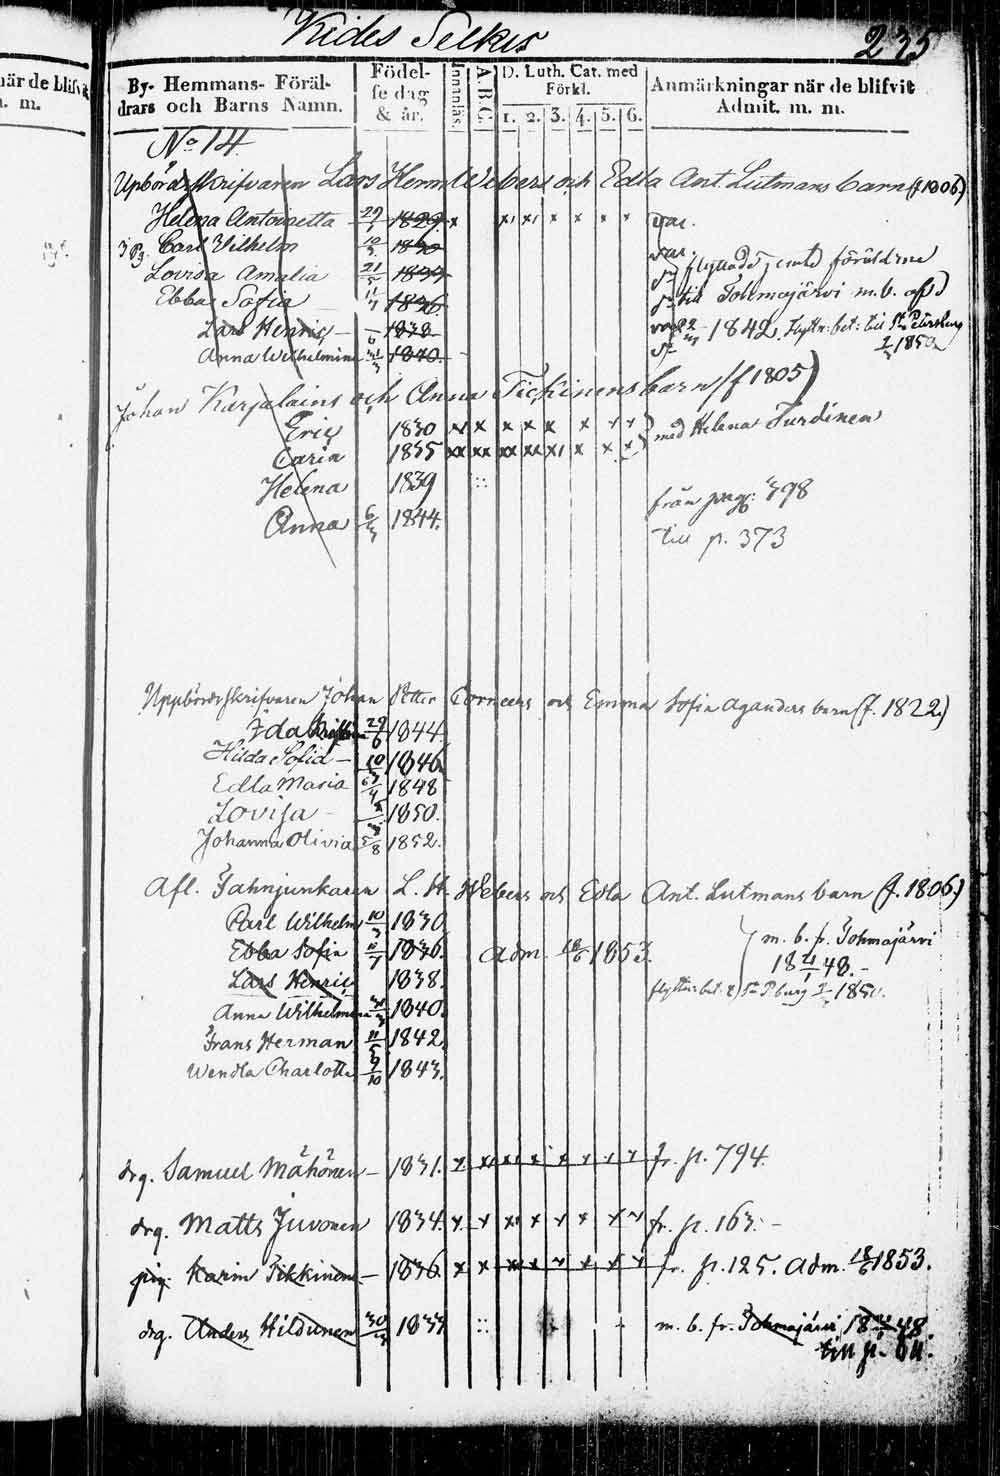 Kides Selkis 235
när de blifvit
m. m.
By- Hemmans- Föräl-
drars och Barns Namn.
Födel-
se dag
& år.
Innanläs.
A.B.C.
D. Luth. Cat. med
Förkl.
1. 2. 3. 4. 5. 6.
Anmärkningar när de blifvit
Admit. m. m.
No 14.
Upbördsskrifvaren Lars Herm Webers och Edla Ant. Lutmans barn (f 1806)
Helena Antoinetta 29/1 1829. x x x x x x x var.
Carl Vilhelm 10/3 1830 var
Lovisa Amalia 21/5 1834 flyttade jemte föräldrne
Ebba Sofia 11/7 1836 till Tohmajärvi m.b. afsd
Lars Henric — 1838 1842. flyttn: bet: till St Pürsburg
Anna Wilhelmina 31/3 1840. 1850
Johan Karjalains och Anna Tickinens barn (f 1805)
Eric 1830 x x x x x x x x
Caria 1835 xx xx xx xx x x x x med Helena Turdinen
Helena 1839 ::
Anna 6/3 1844. från pag: 398
till p. 373
Uppbördsskrifvaren Johan Petter Corneers och Emma Sofia Aganders barn (f. 1822.)
Ida 29/6 1844.
Hilda Sofia — 1846
Edla Maria 1848
Lovisa — 1850.
Johanna Olivia 5/8 1852.
Afl. Fahnjunkaren L. H. Webers och Edla Ant. Lutmans barn (f. 1806.)
Carl Wilhelm 10/3 1830
Ebba Sofia 11/7 1836. adm. 18/6 1853. m. b. fr. Tohmajärvi
Lars Henric 1838. 18 21/1 48.-
Anna Wilhelmina 31/3 1840. flyttn: bet. t) St Pburg 1850.
Frans Herman 11/5 1842.
Wendla Charlotta 9/10 1843.
drg. Samuel Mähönen — 1831. x x x x x x x x fr. p. 794.
drg. Matts Juvonen 1834. x x x x x x x x fr. p. 163. -
pig. Karin Tikkinen — 1836. x x x x x x x x fr. p. 125. adm. 18/6 1853.
drg. Anders Hildunen 30/3 1833 :: m. b. fr. Tohmajärvi 18 48.
till p.